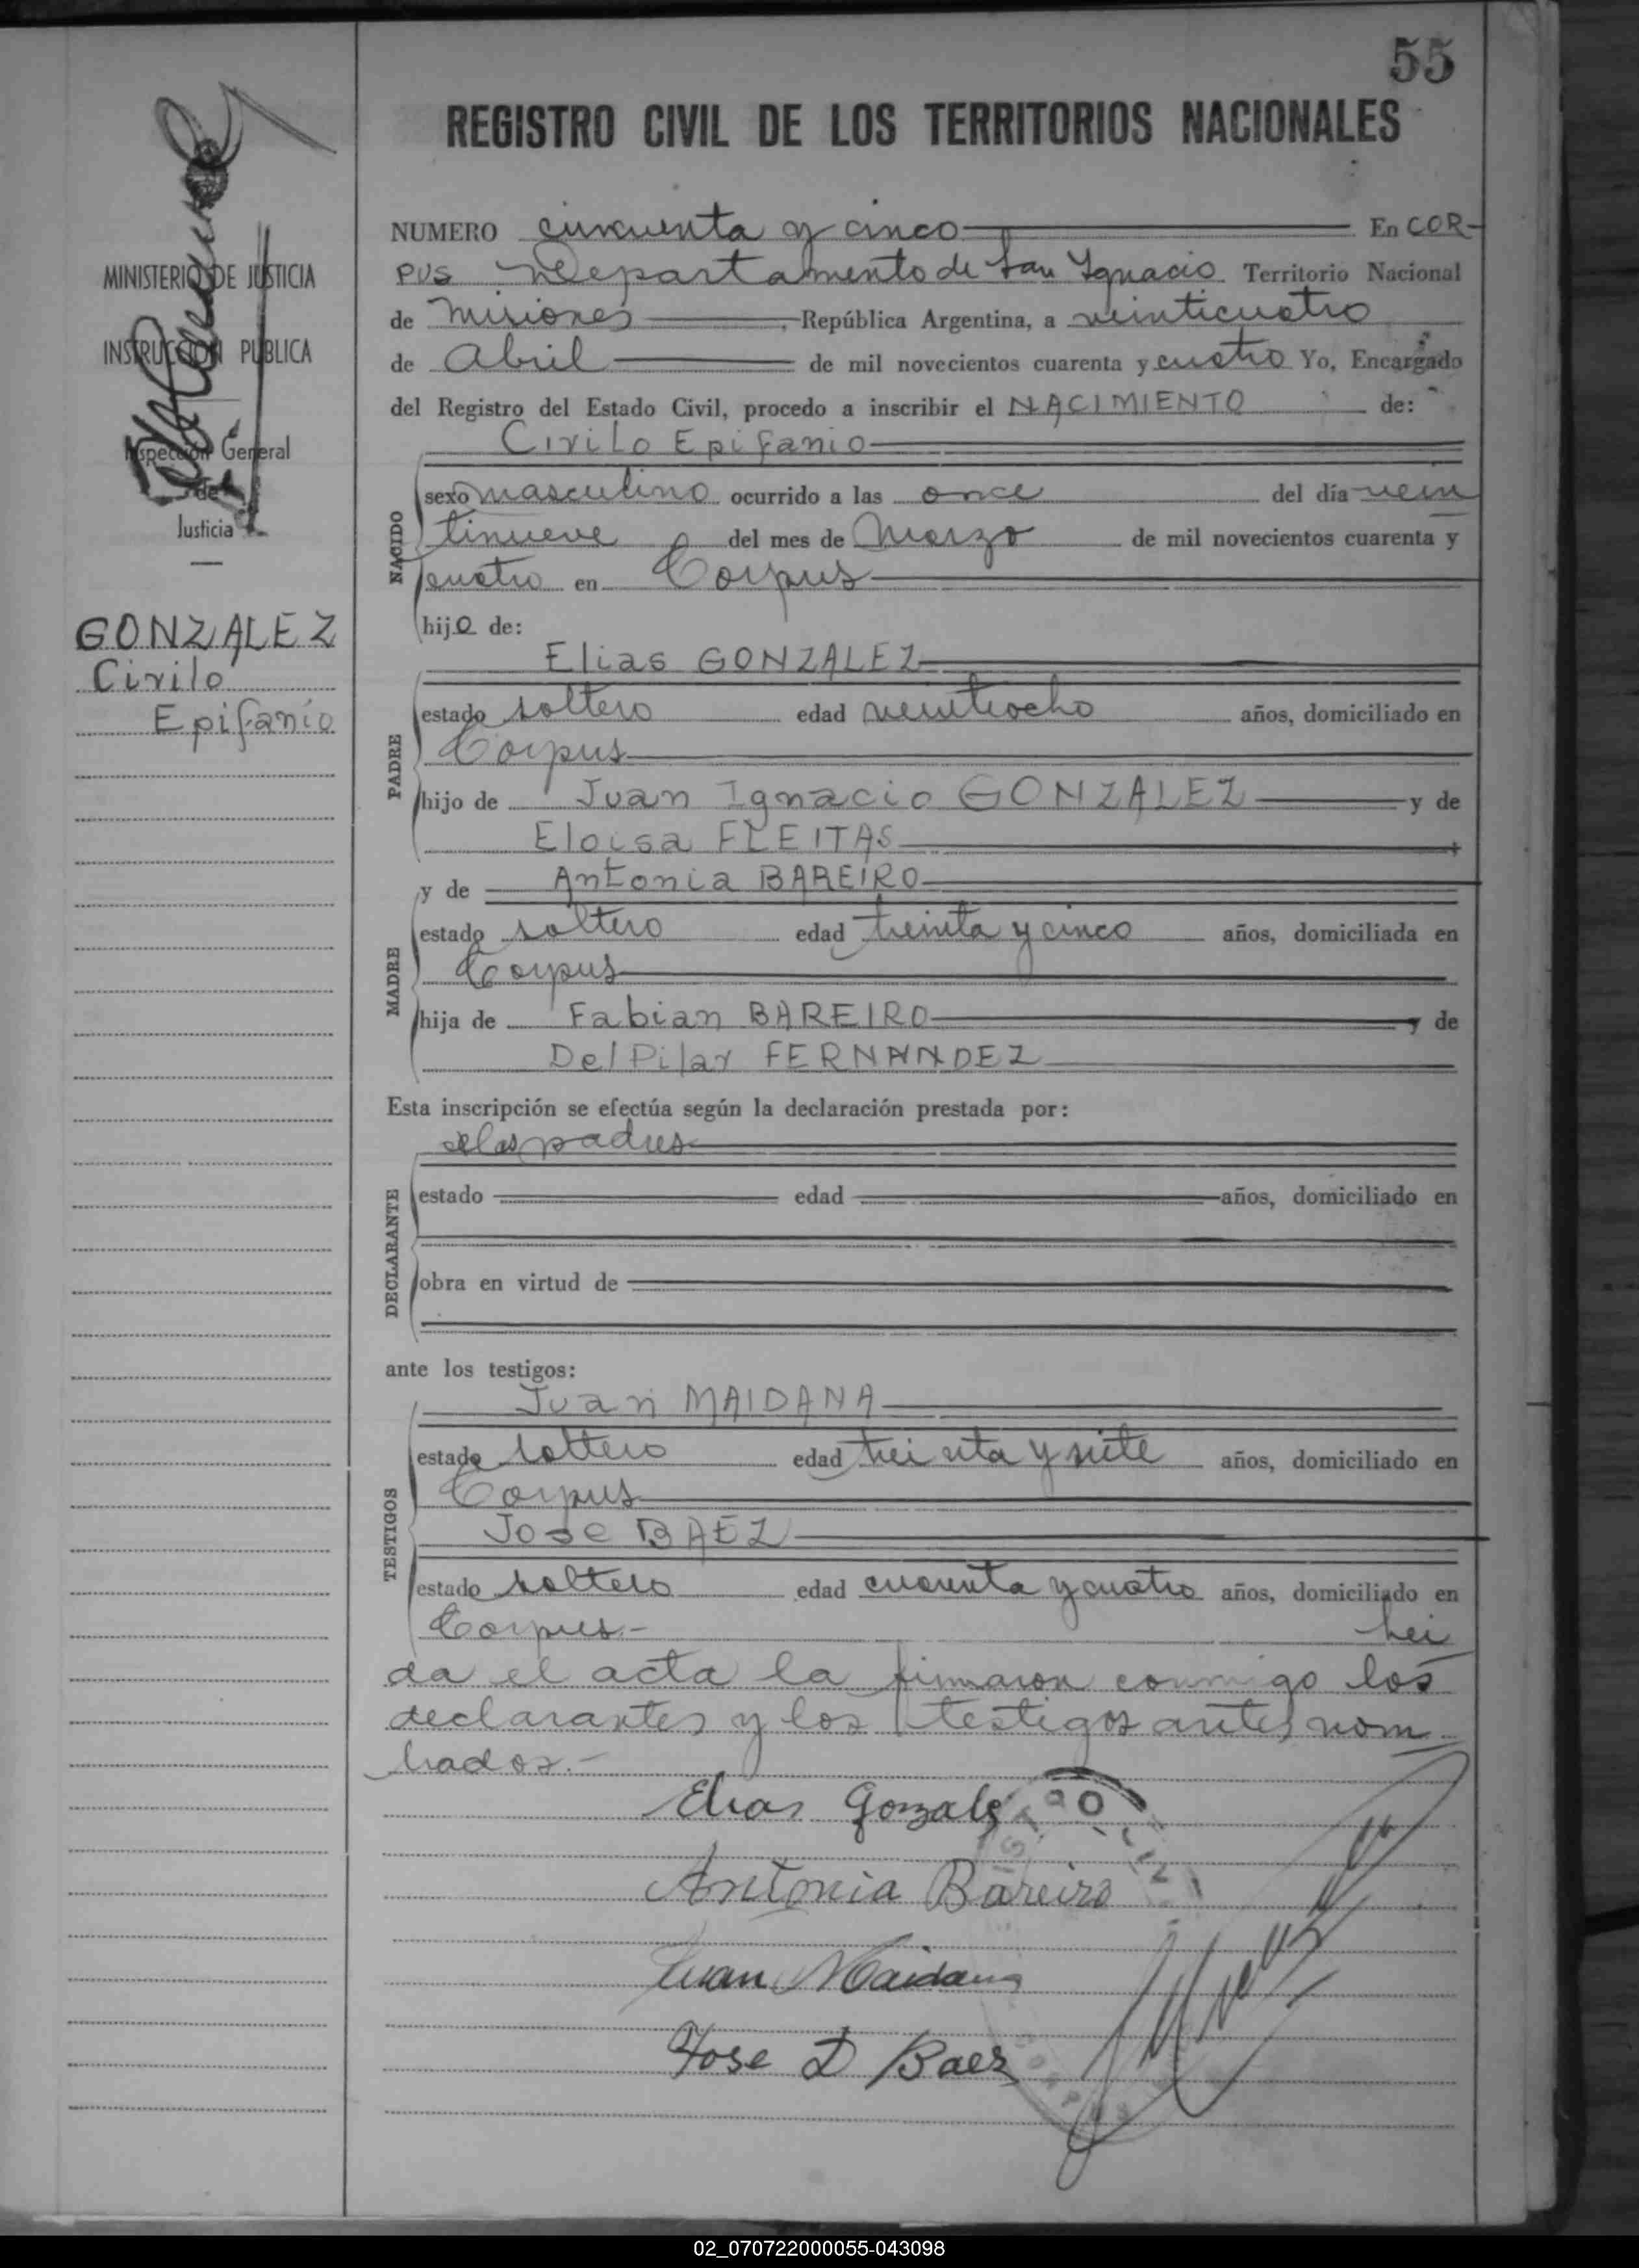 55
REGISTRO CIVIL DE LOS TERRITORIOS NACIONALES
MINISTERIO DE JUSTICIA
INSTRUCCION PUBLICA
Inspección General
de
Justicia
GONZALEZ
Cirilo
Epifanio
NUMERO cincuenta y cinco En COR-
PUS Departamento de San Ignacio Territorio Nacional
de Misiones, República Argentina, a veinticuatro
de Abril de mil novecientos cuarenta y cuatro Yo, Encargado
del Registro del Estado Civil, procedo a inscribir el NACIMIENTO de:
Cirilo Epifanio
NACIDO
sexo masculino ocurrido a las once del día vein
tinueve del mes de Marzo de mil novecientos cuarenta y
cuatro en Corpus
hijo de:
Elias GONZALEZ
PADRE
estado soltero edad veintiocho años, domiciliado en
Corpus
hijo de Juan Ignacio GONZALEZ y de
Eloisa FLEITAS
y de Antonia BAREIRO
MADRE
estado soltero edad treinta y cinco años, domiciliada en
Corpus
hija de Fabian BAREIRO y de
Del Pilar FERNANDEZ
Esta inscripción se efectúa según la declaración prestada por:
los padres
DECLARANTE
estado edad años, domiciliado en
obra en virtud de
ante los testigos:
Juan MAIDANA
TESTIGOS
estado soltero edad treinta y siete años, domiciliado en
Corpus
Jose BAEZ
estado soltero edad cuarenta y cuatro años, domiciliado en
Corpus.- lei
da el acta la firmaron conmigo los
declarantes y los testigos antes nom
brados.-
Elias Gonzalez
Antonia Bareiro
Juan Maidana
Jose D Baez
CORPUS
02_070722000055-043098